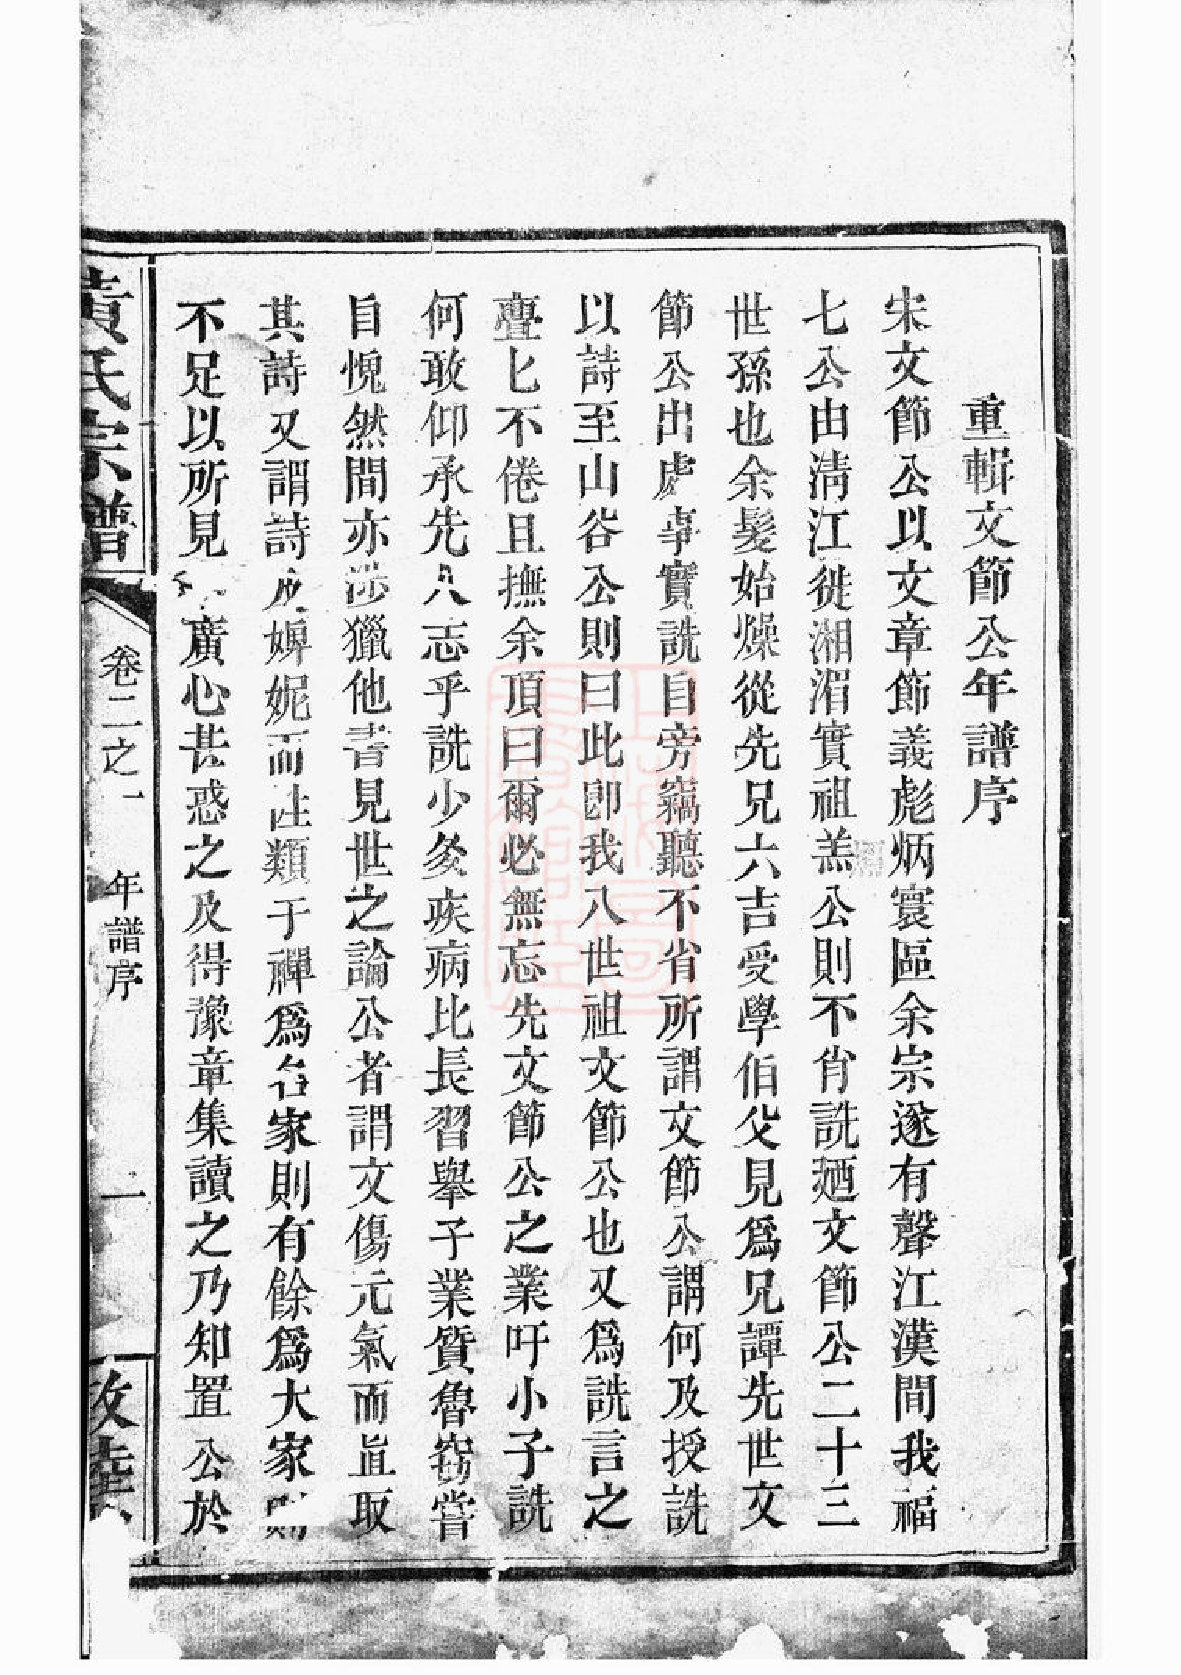 重輯文節公年譜序
宋文節公以文章節義彪炳寰區余宗遂有聲江漢間我福
七公由清江徙湘湄實祖羔公則不肖詵廼文節公二十三
世孫也余髮始燥從先兄六吉受學伯父見爲兄譚先世文
節公出處事實詵自旁竊聽不省所謂文節公謂何及授詵
以詩至山谷公則曰此卽我八世祖文節公也又爲詵言之
亹匕不倦且撫余頂曰爾必無忘先文節公之業吁小子詵
何敢仰承先人志乎詵少灸疾病比長習舉子業質魯窃嘗
自愧然間亦涉獵他書見世之論公者謂文傷元氣而直取
其詩又謂詩成婢妮而性類于禪爲名家則有餘爲大家則
不足以所見 廣心甚惑之及得豫章集讀之乃知置公於
黃氏宗譜
卷二之一 年譜序
一
敦睦